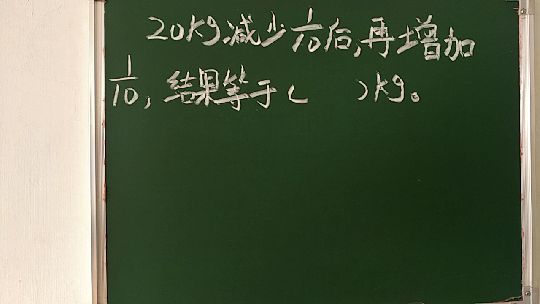 20kg减少1/10后,再增加
1/10,结果等于(  )kg。